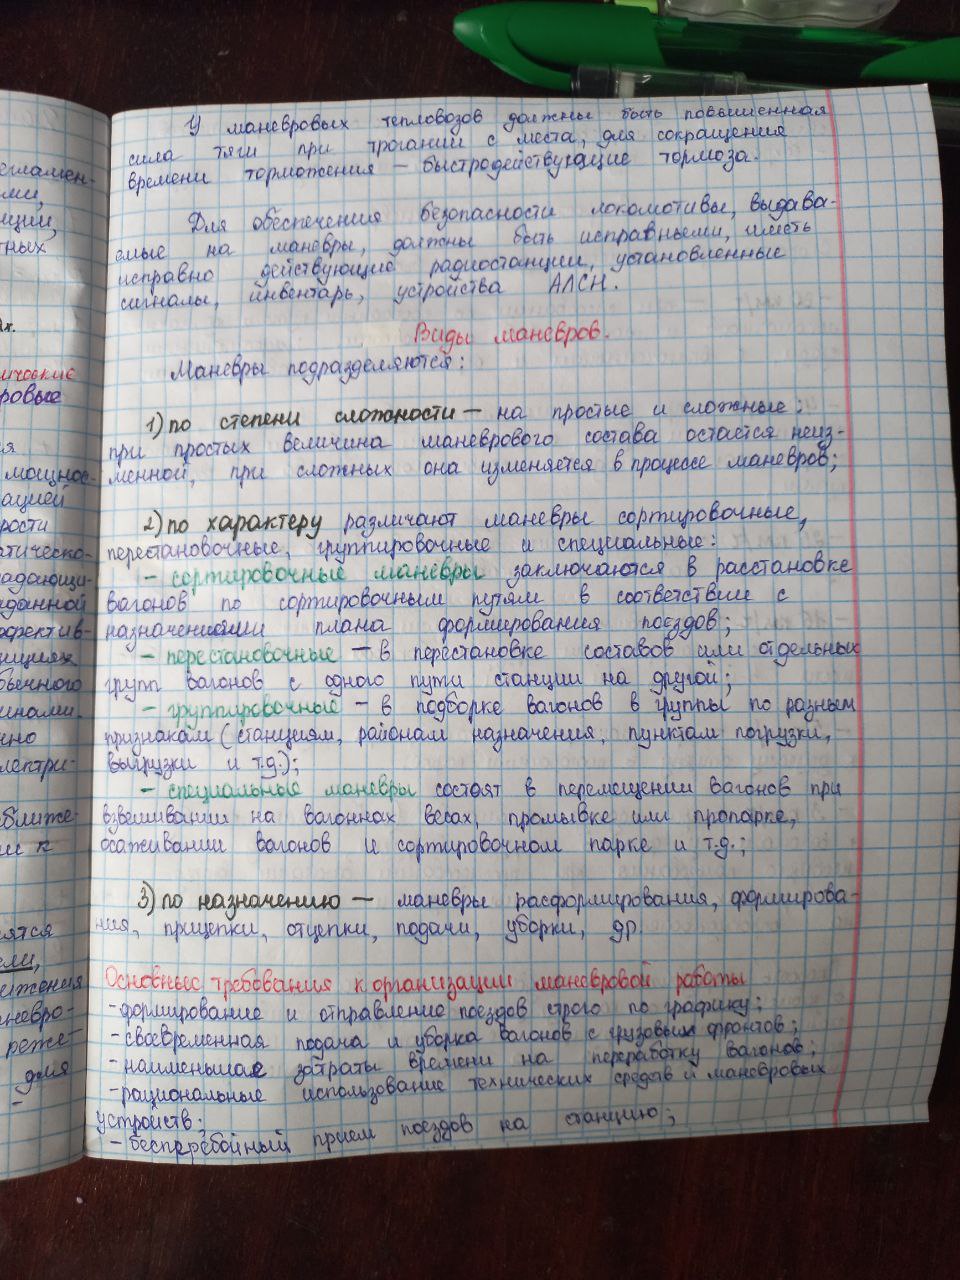 У маневровых тепловозов должны быть повышенная
сила тяги при трогании с места, для сокращения
времени торможения – быстродействующие тормоза.
Для обеспечения безопасности локомотивы, выдава-
емые на маневры, должны быть исправными, иметь
исправно действующие радиостанции, установленные
сигналы, инвентарь, устройства АЛСН.
Виды маневров.
Маневры подразделяются:
1) по степени сложности – на простые и сложные:
при простых величина маневрового состава остается неиз-
менной, при сложных она изменяется в процессе маневров;
2) по характеру различают маневры сортировочные,
перестановочные, группировочные и специальные:
– сортировочные маневры заключаются в расстановке
вагонов по сортировочным путям в соответствии с
назначениями плана формирования поездов;
– перестановочные – в перестановке составов или отдельных
групп вагонов с одного пути станции на другой;
– группировочные – в подборке вагонов в группы по разным
признакам (станциям, районам назначения, пунктам погрузки,
выгрузки и т.д.);
– специальные маневры состоят в перемещении вагонов при
взвешивании на вагонных весах, промывке или пропарке,
осаживании вагонов и сортировочном парке и т.д.;
3) по назначению – маневры расформирования, формирова-
ния, прицепки, отцепки, подачи, уборки, др.
Основные требования к организации маневровой работы
-формирование и отправление поездов строго по графику;
-своевременная подача и уборка вагонов с грузовых фронтов;
-наименьшая затраты времени на переработку вагонов;
-рациональные использование технических средств и маневровых
устройств;
-бесперебойный прием поездов на станцию;